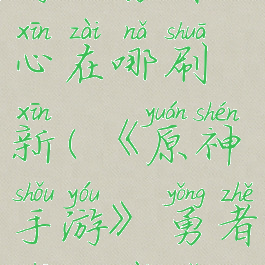 xīn zài nǎ shuā
心在哪刷
xīn yuán shén
新(《原神
shǒu yóu yǒng zhě
手游》勇者